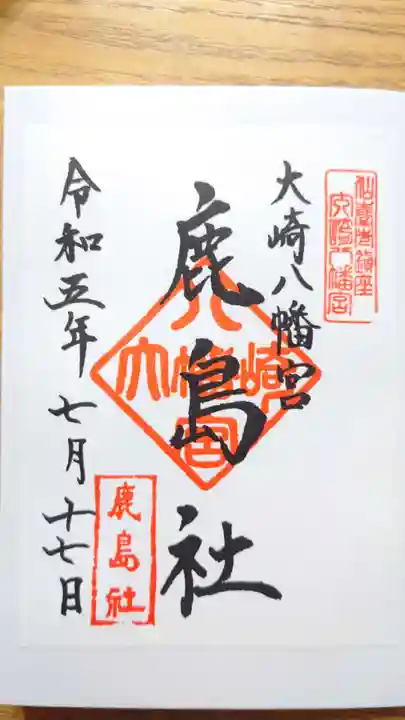 仙臺市鎮座
大崎八幡宮
大崎八幡宮
鹿島社
大崎八幡宮
令和五年七月十七日
鹿島社